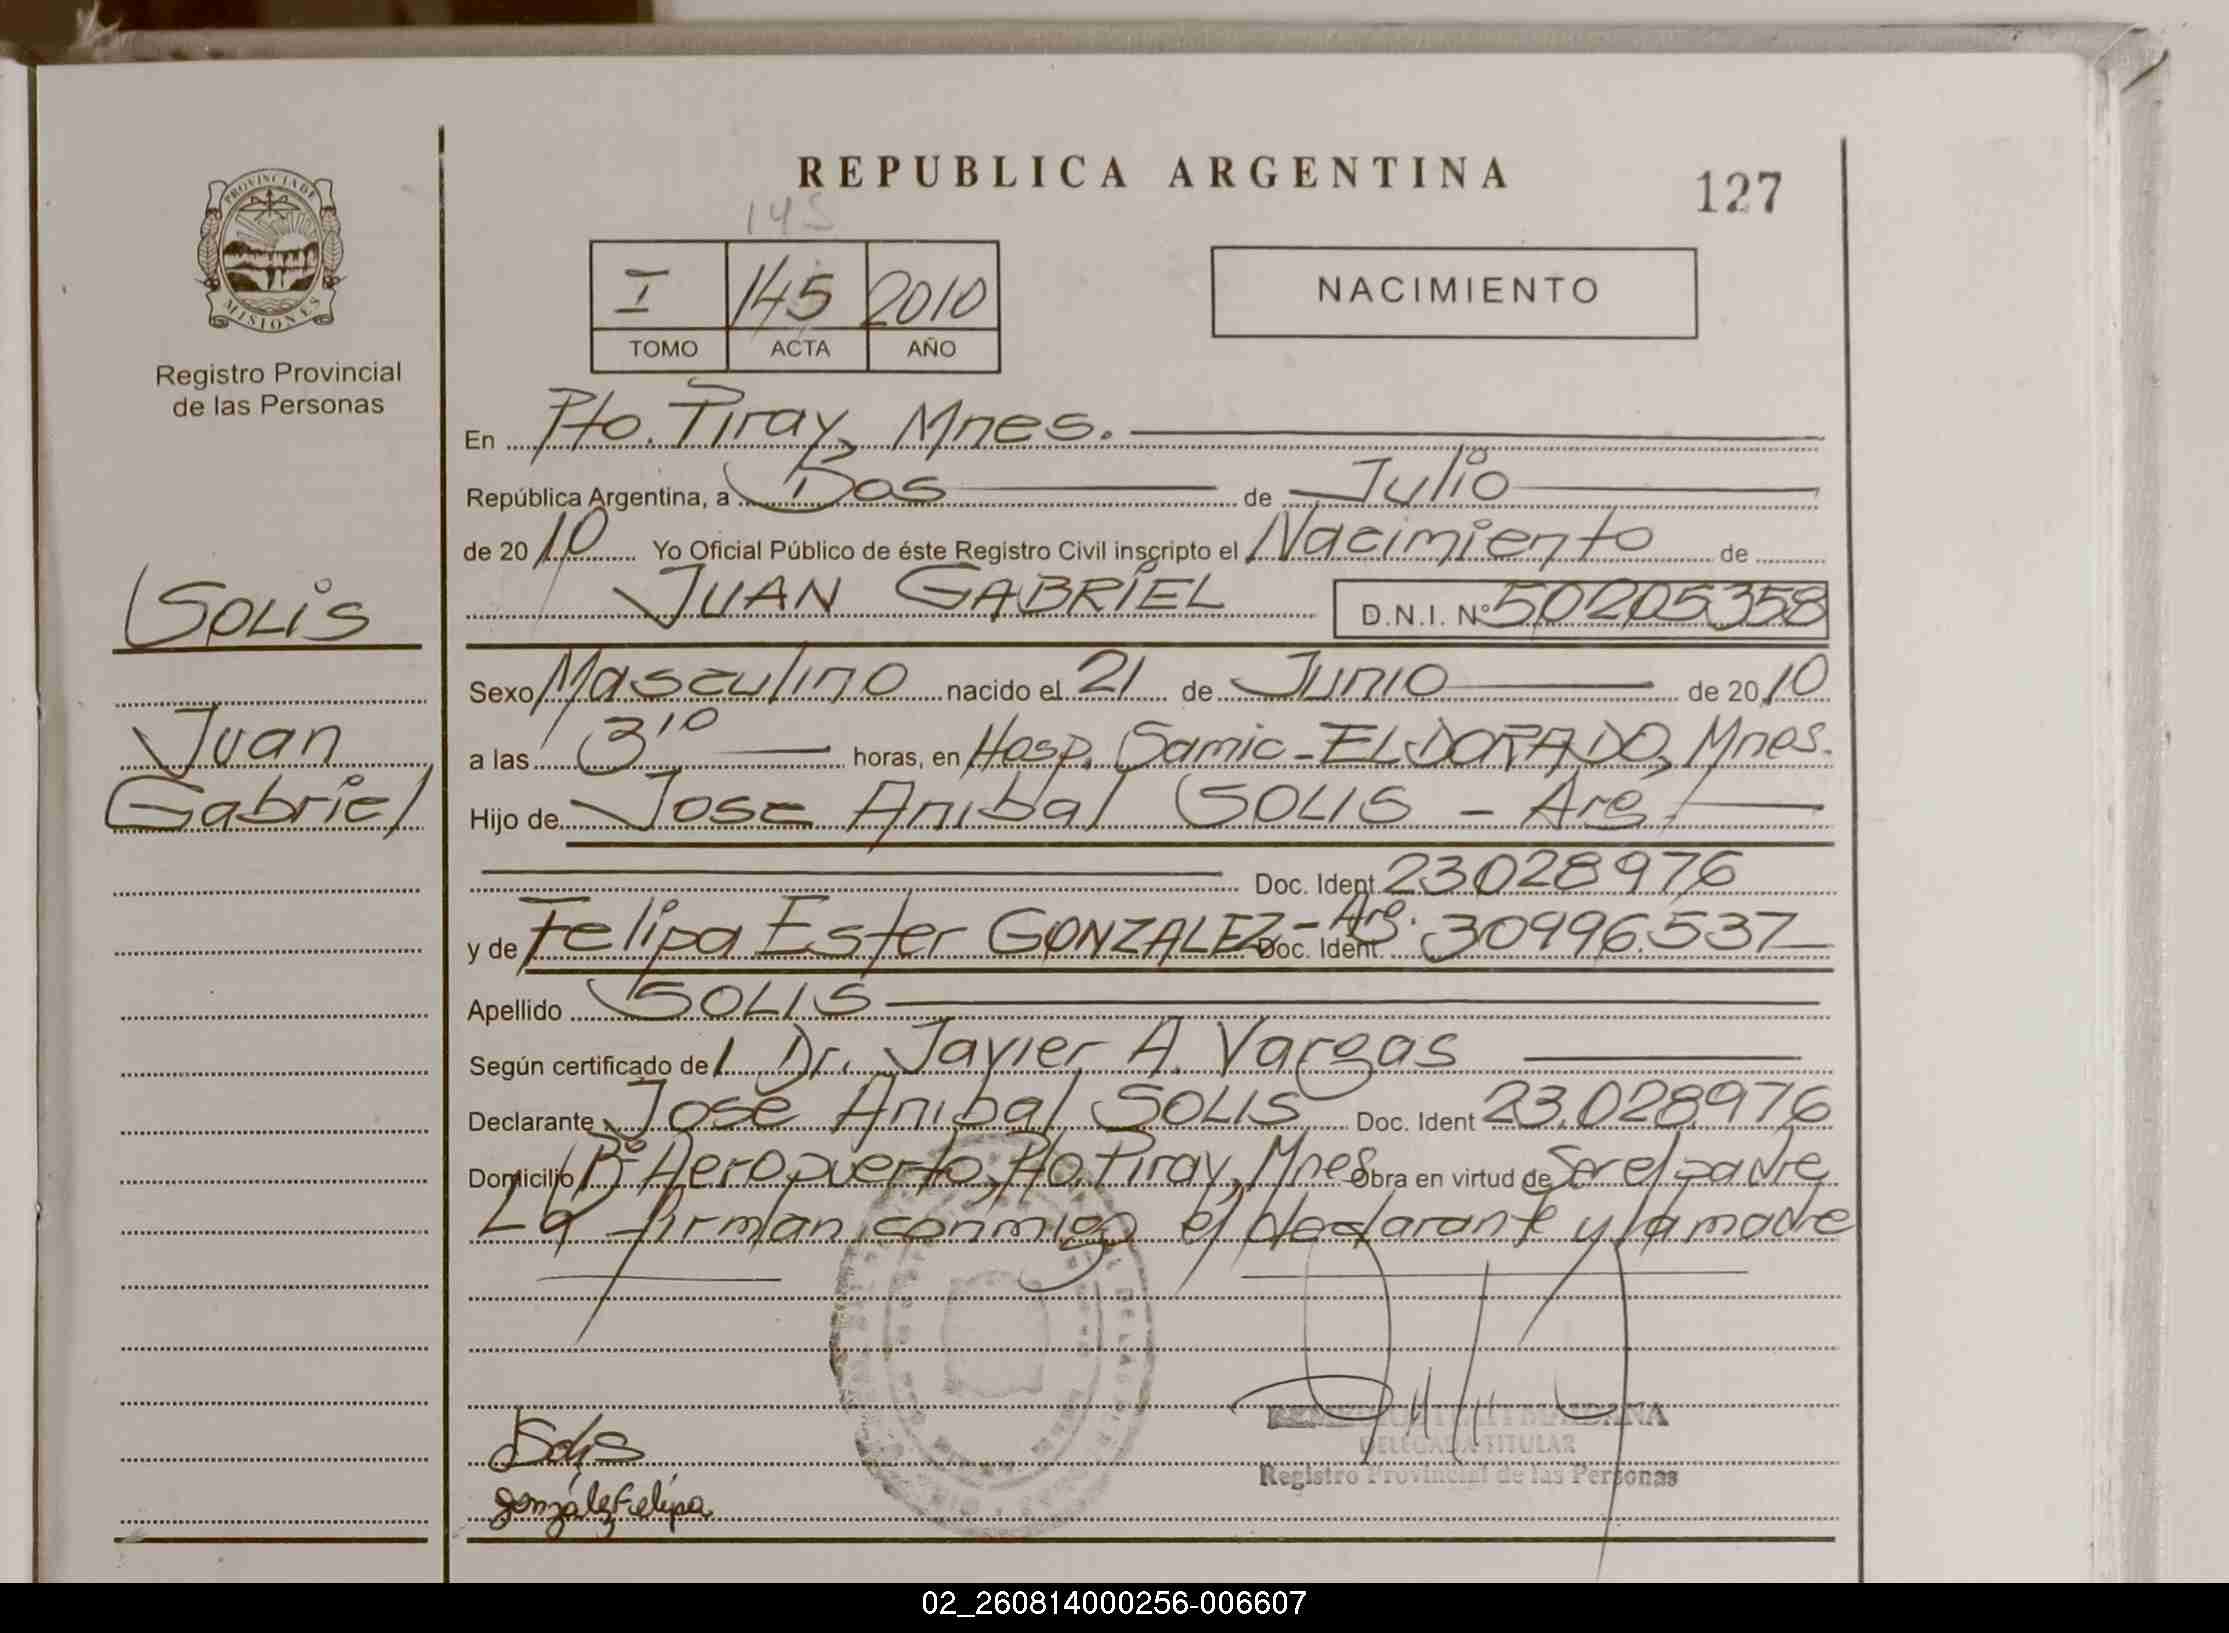 REPUBLICA ARGENTINA
127
145
PROVINCIA DE
MISIONES
Registro Provincial
de las Personas
I 145 2010
TOMO ACTA AÑO
NACIMIENTO
En Pto. Piray, Mnes.
República Argentina, a Dos de Julio
de 2010 Yo Oficial Público de éste Registro Civil inscripto el Nacimiento de
JUAN GABRIEL D.N.I. Nº 50205358
SOLIS
Juan
Gabriel
Sexo Masculino nacido el 21 de Junio de 2010
a las 3 10 horas, en Hosp. Samic - ELDORADO, Mnes.
Hijo de Jose Anibal SOLIS - Arg.
Doc. Ident. 23028976
y de Felipa Ester GONZALEZ - Arg. Doc. Ident. 30996.537
Apellido SOLIS
Según certificado del Dr. Javier A. Vargas
Declarante José Anibal SOLIS Doc. Ident 23.028.976
Domicilio Bº Aeropuerto, Pto. Piray, Mnes Obra en virtud de Ser el padre
La firman conmigo el declarante y la madre
DELEGADA TITULAR
Registro Provincial de las Personas
Solis
gonzález Felipa
02_260814000256-006607